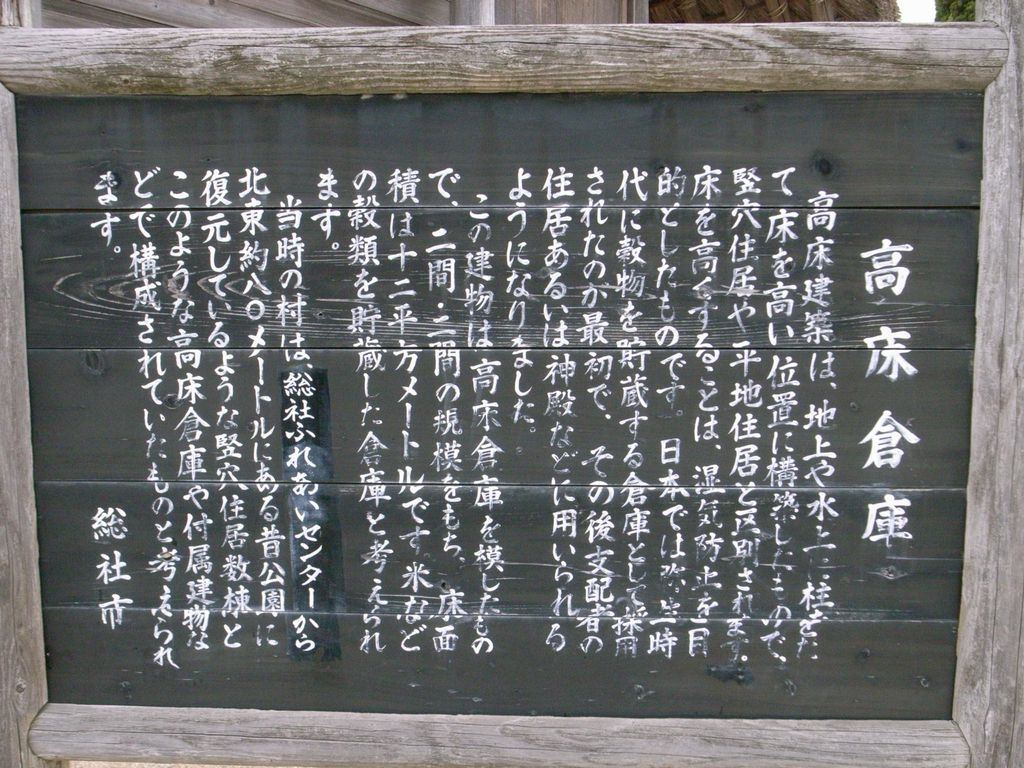 高床倉庫
高床建築は、地上や水上に柱をた
て床を高い位置に構築したもので、
竪穴住居や平地住居と区別されます。
床を高くすることは、湿気防止を目
的としたものです。日本では弥生時
代に穀物を貯蔵する倉庫として採用
されたのが最初で、その後支配者の
住居あるいは神殿などに用いられる
ようになりました。
この建物は、高床倉庫を模したもの
で、二間・二間の規模をもち、床面
積は十二平方メートルです。米など
の穀類を貯蔵した倉庫と考えられ
ます。
当時の村は、総社ふれあいセンターから
北東約八〇メートルにある昔公園に
復元しているような竪穴住居数棟と
このような高床倉庫や付属建物な
どで構成されていたものと考えられ
ます。
総社市